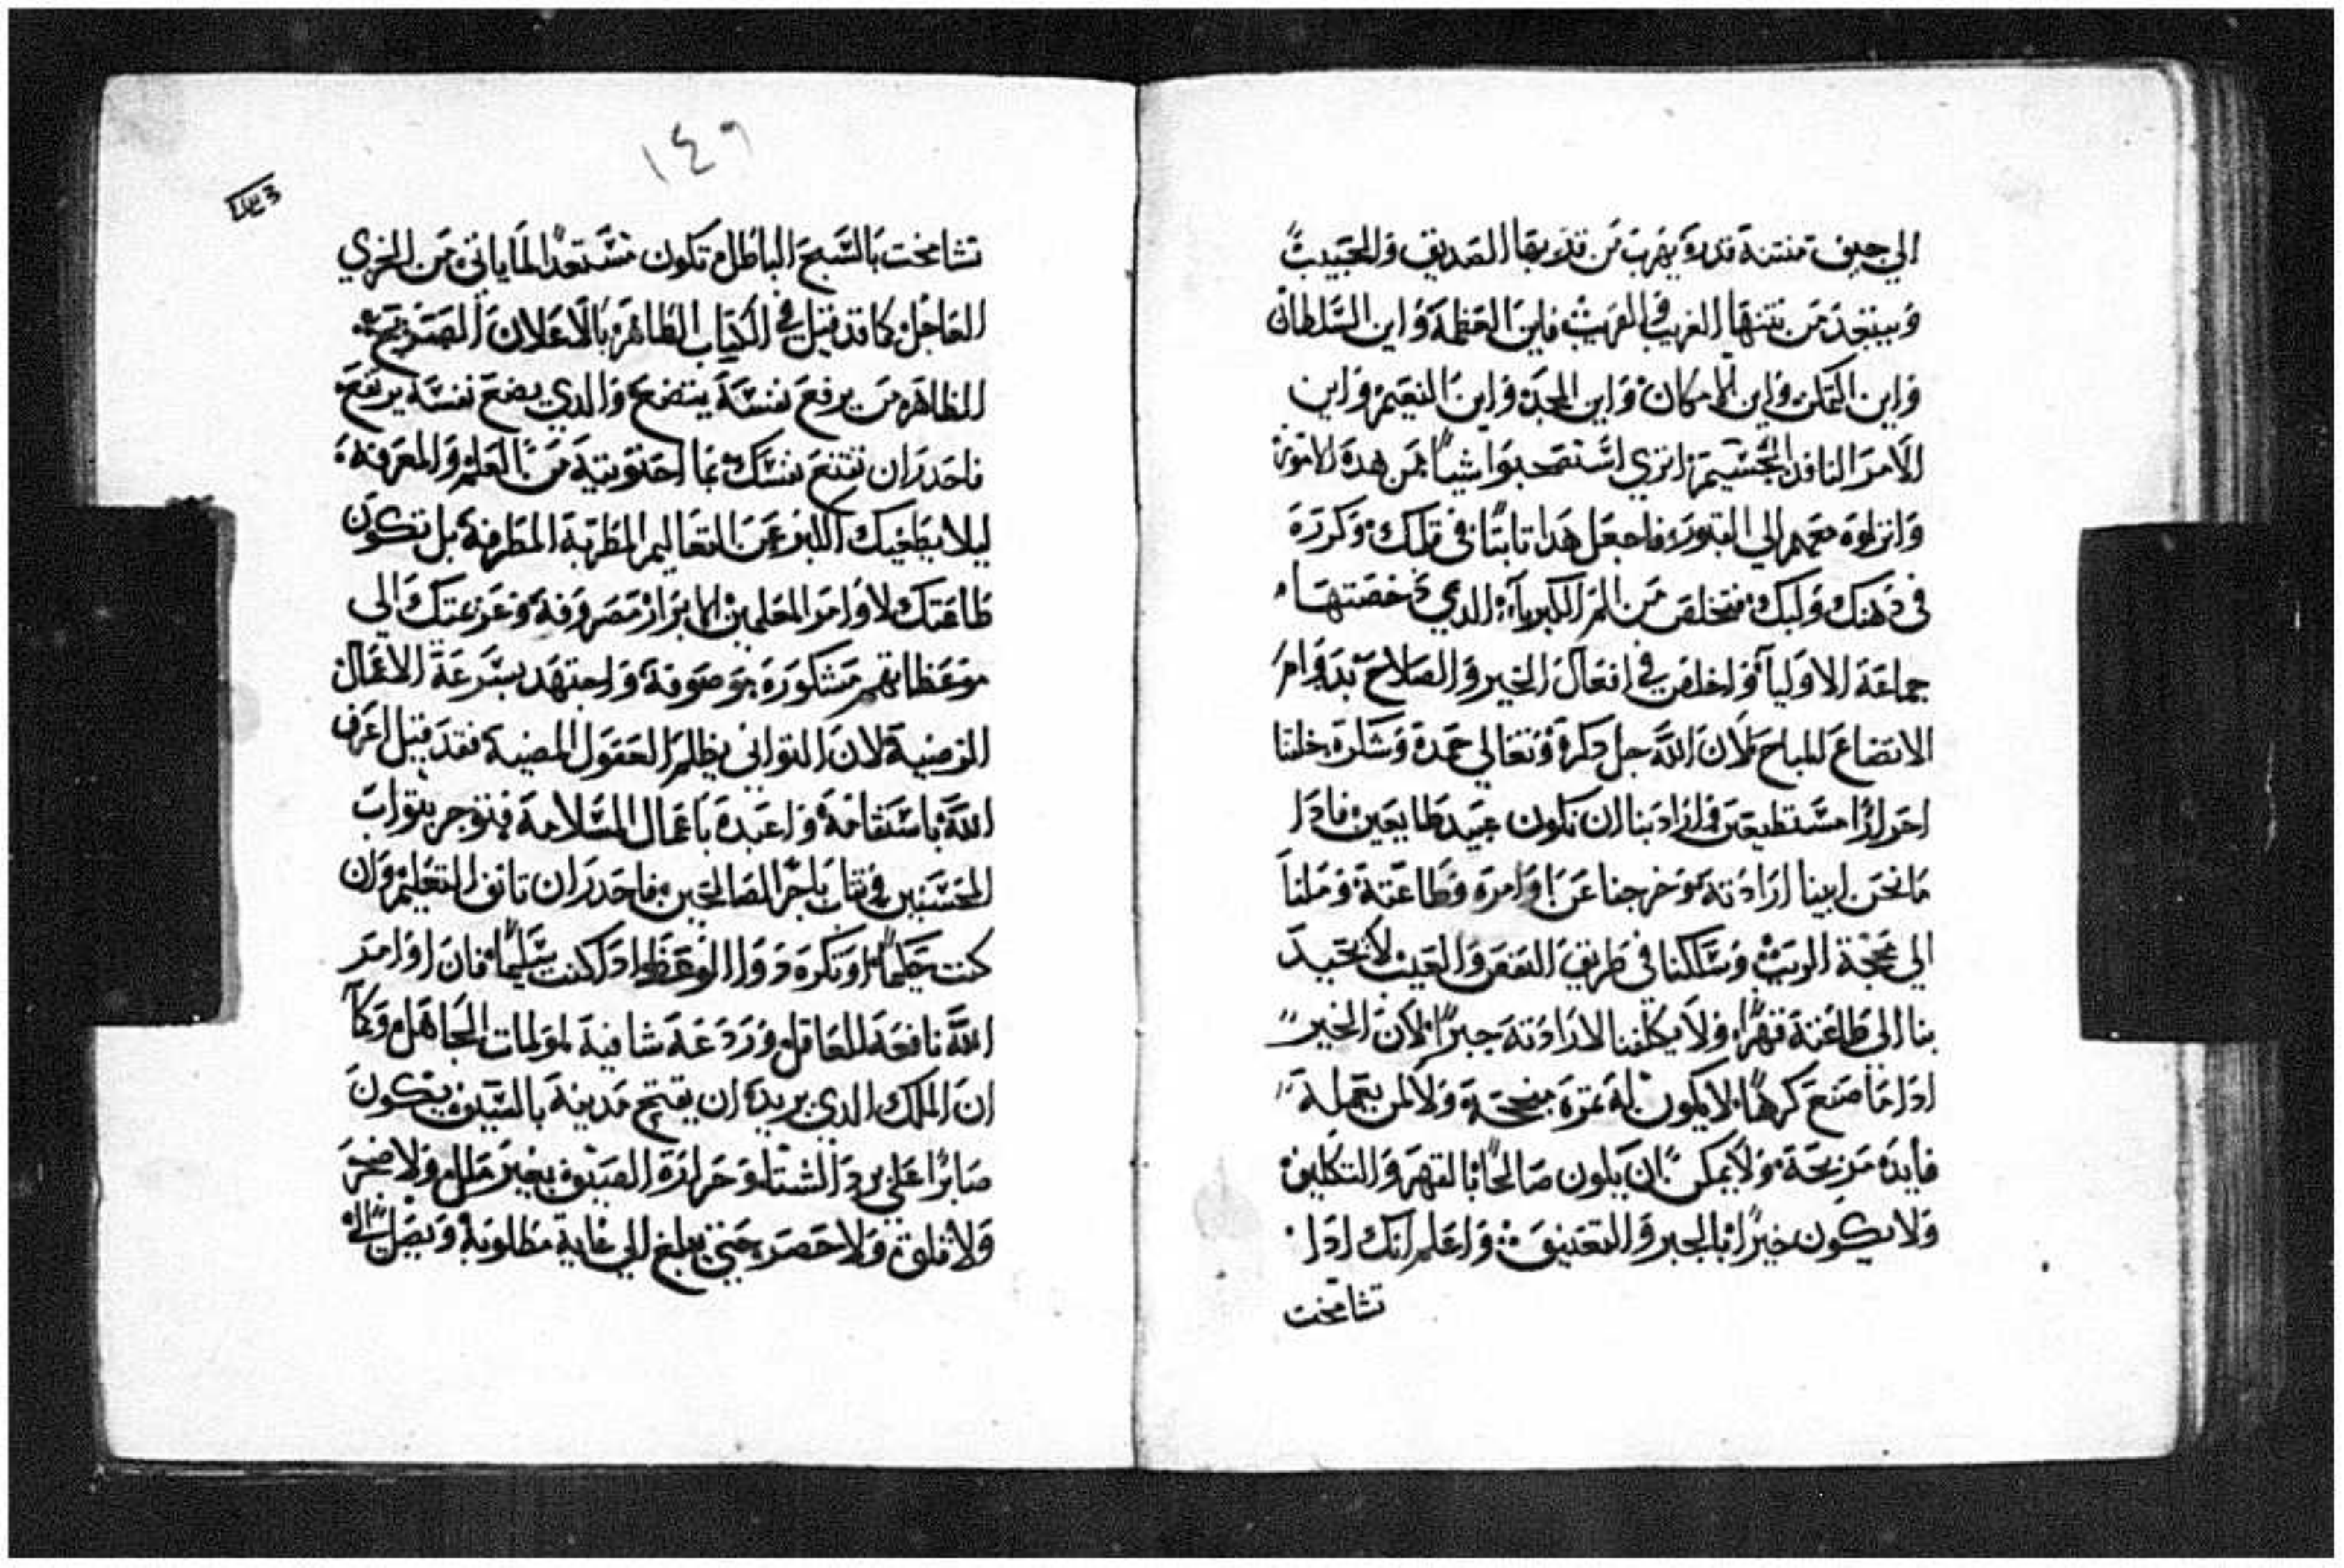 الي جيف منتنة قدرة يهرب من قدريتها الصديق والحبيب
ويبتعد من نتنها الغريب والقريب فاين العظمة واين السلطان
واين التمكن واين الامكان واين المجد واين النعيم واين
الامر النافد الجسيم اتري استصحبوا شيا من هده الامور
وانزلوه معهم الي القبور فاجعل هدا تابتا في قلبك وكررة
في دهنك ولبك فتخلص من المر الكبرياء الدي دحضتها
جماعة الاوليا واخلص في افعال الخير والصلاح بدوام
الاتضاع للمباح لان الله جل دكرة وتعالي حمدة وشكرة خلقنا
احرارا مستطيعين في ارادبنا ان نكون عبيد طايعين فادا
ما نحن ابينا ارادته وخرجنا عن اوامرة وطاعتة وملنا
الي محجة الريب وسلكنا في طريق النقص والعيب لا يجبد
بنا الي طاعتة قهرا ولا يكلفنا لارادتة جبرا لان الخير
ادا ما صنع كرها لا يكون له تمرة منجحة ولا لمن يعملة
فايدة مربحة ولا يمكن ان يكون صالحا بالقهر والتكليف
ولا يكون خيرا بالجبر والتعنيف واعلم انك ادا
تشامخت
١٤٩
تشامخت بالشبح الباطل تكون مستعدا لما ياتي من الخزي
العاجل كما قد قيل في الكتاب الظاهر بالاعلان التصريح
الظاهر من يرفع نفسة يتضع والدي يضع نفسة يرتفع
فاحدر ان تقنع نفسك بما احتويتة من العلم والمعرفة
ليلا يطغيك الكبر عن التعاليم المطربة المطرفة بل تكون
طاعتك لاوامر المعلمين الابرار مصروفة وعزيمتك الي
موعظاتهم مشكورة موصوفة واجتهد بسرعة الاعمال
المرضية لان التواني يظلم العقول المضية فقد قيل اعرف
الله باستقامة واعبدة باعمال السلامة فتوجر بتواب
المحسنين وتتاب باجر الصالحين فاحدر ان تانف التعليم وان
كنت حكيما او تكره دوا الوعظ ادا كنت سليما فان اوامر
الله نافعة للعاقل وردعة شافية لمولمات الجاهل وكما
ان الملك الدي يريد ان يفتح مدينة بالسيف يكون
صابرا علي برد الشتا وحرارة الصيف بغير ملل ولا ضجر
ولا قلق ولا حصر حتي يبلغ الي غاية مطلوبة ويصل الي